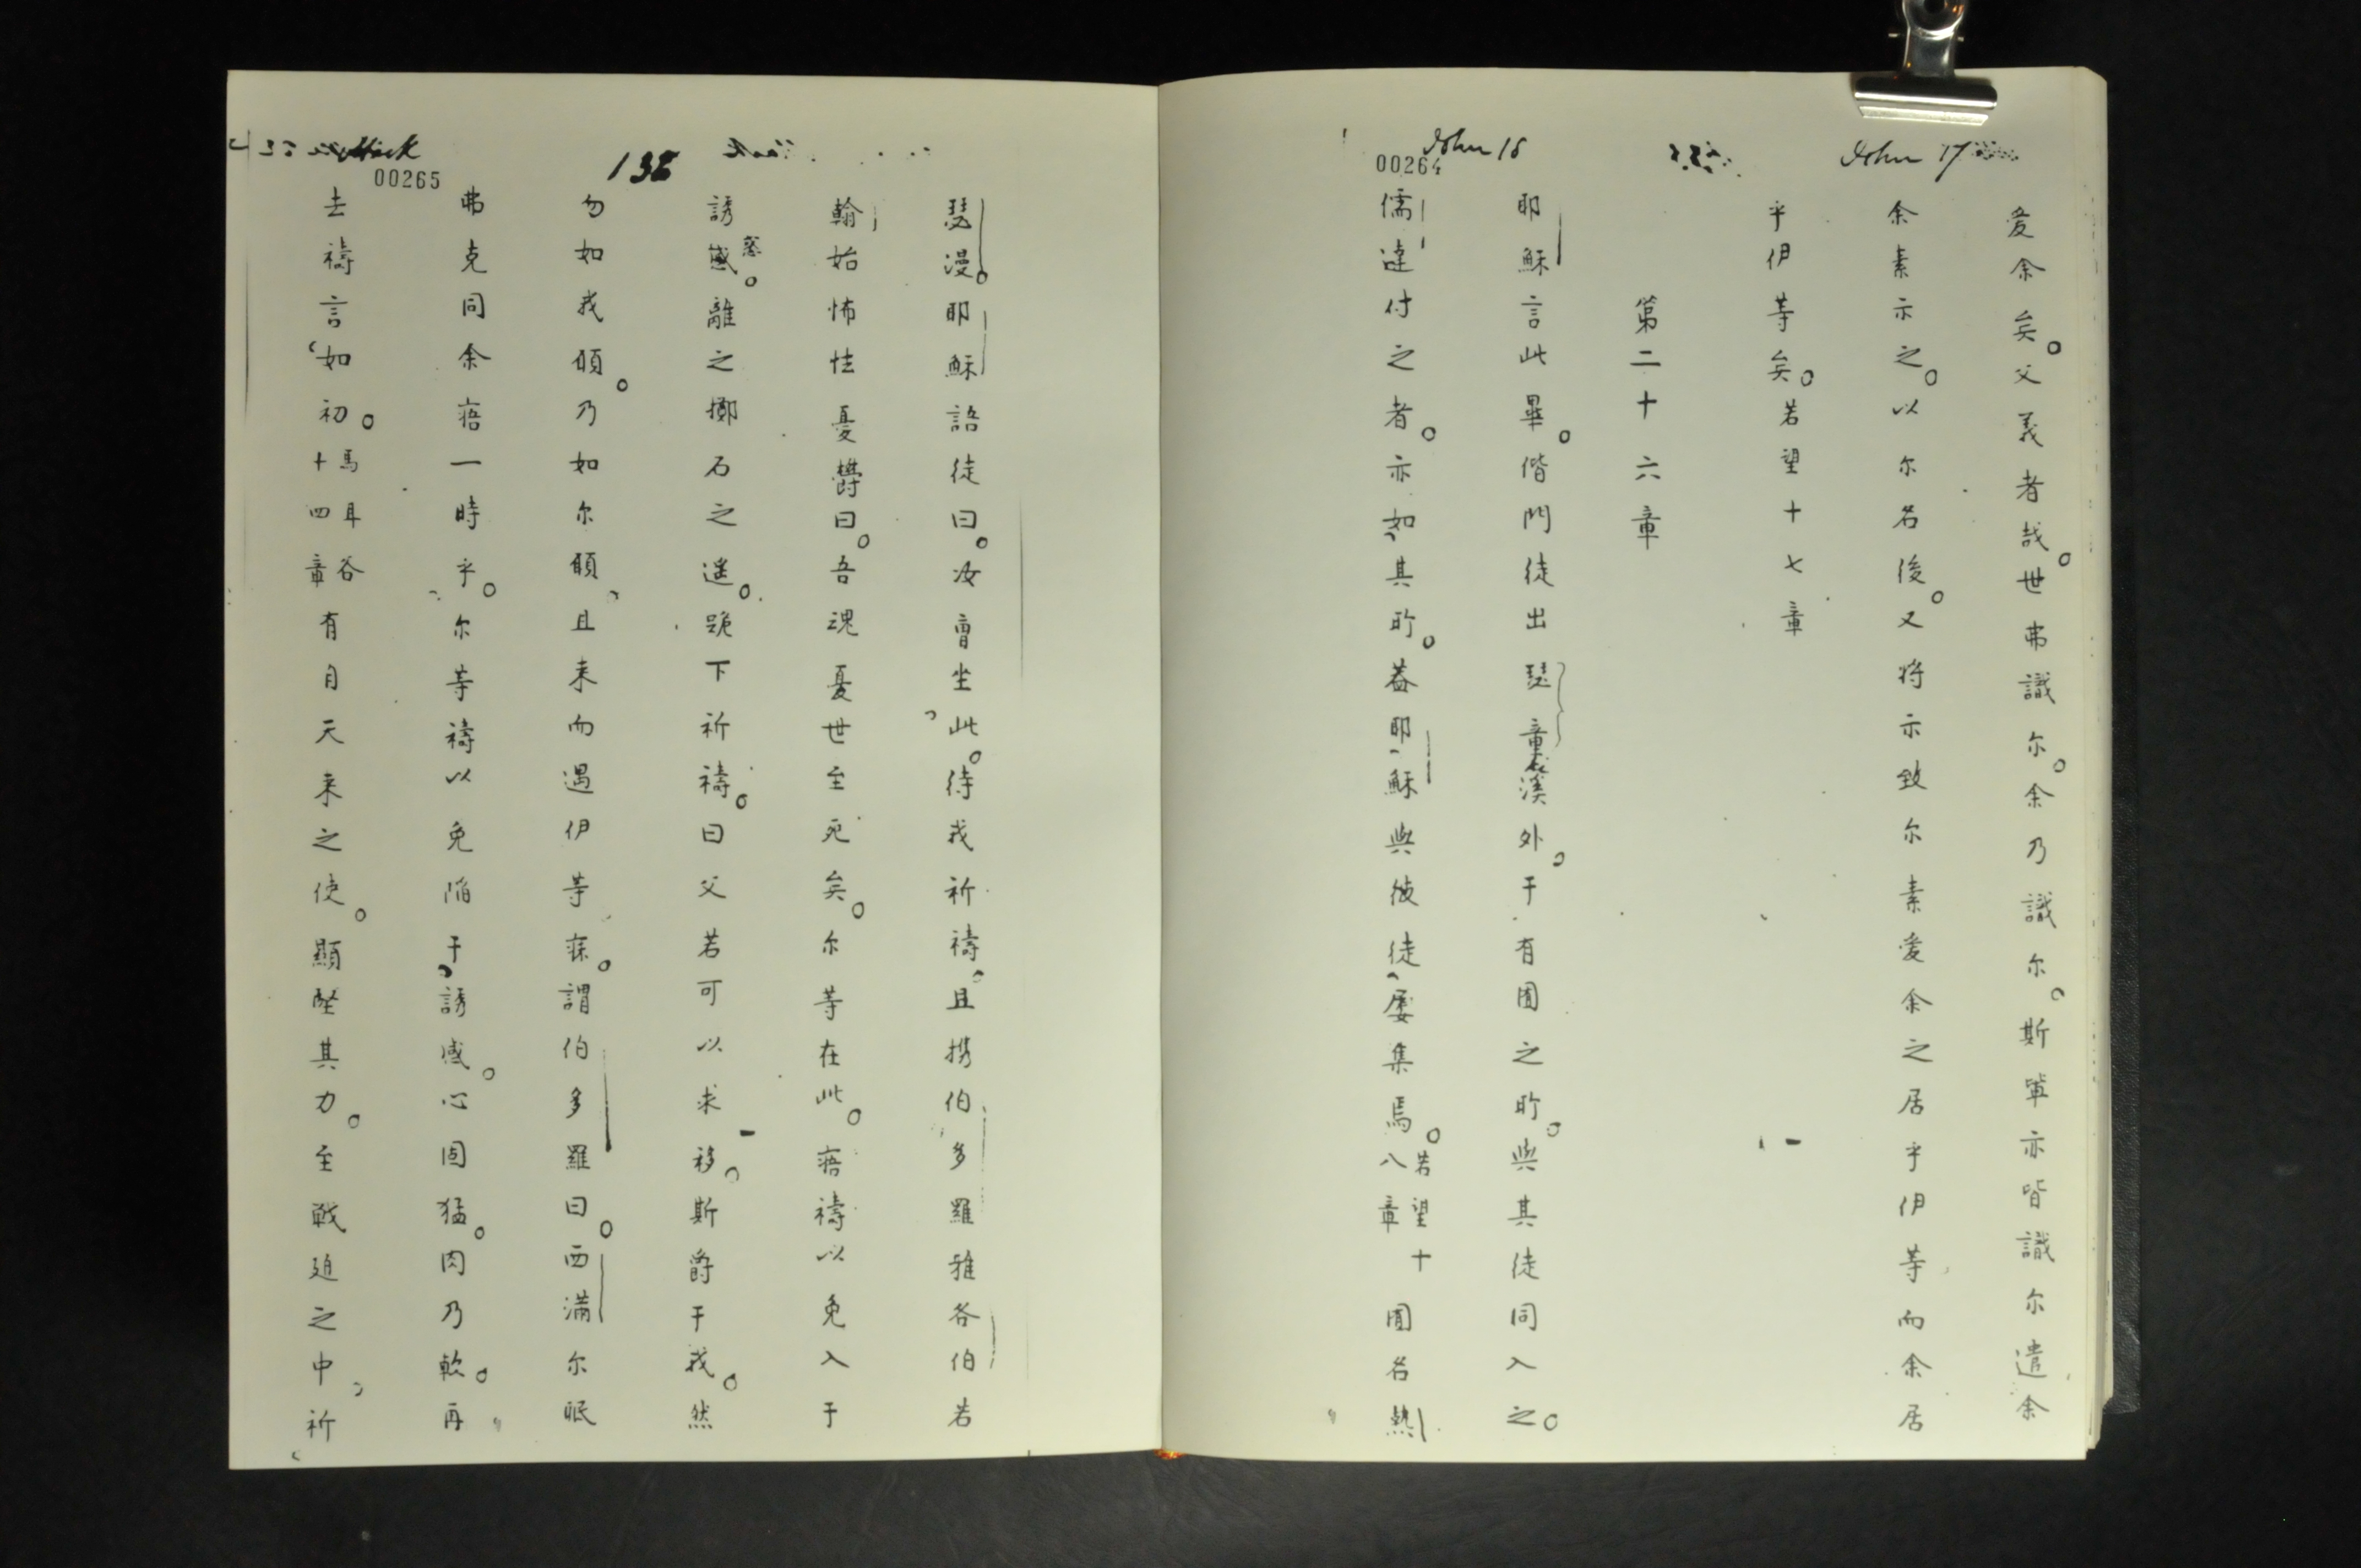 John 17
愛余矣。父義者哉。世弗識尔。余乃識尔。斯輩亦皆識尔遣余
余素示之。以尔名後。又将示致尔素愛余之居乎伊等而余居
乎伊等矣。若望十七章
第二十六章
John 18
00264
耶穌言此畢。偕門徒出瑟 溪外。于有囿之所。與其徒同入之。
儒達付之者。亦如其所。蓋耶穌與彼徒屡集焉。若望十八章囿名熱
瑟漫。耶穌語徒曰。汝曹坐此。待我祈禱。且携伯多羅雅各伯若
翰始怖怯憂欝曰。吾魂憂世至死矣。尔等在此。寤禱以免入于
136
誘感惑。離之擲石之遥。跪下祈禱。曰父若可以求移。斯爵于我。然
勿如我願。乃如尔願。且来而遇伊等寐。謂伯多羅曰。西满尔眠
弗克同余寤一時乎。尔等禱以免陷于誘感。心固猛。肉乃軟。再
Mark
00265
去禱言如初。馬耳谷十四章有自天来之使。顯堅其力。至戦廹之中。祈